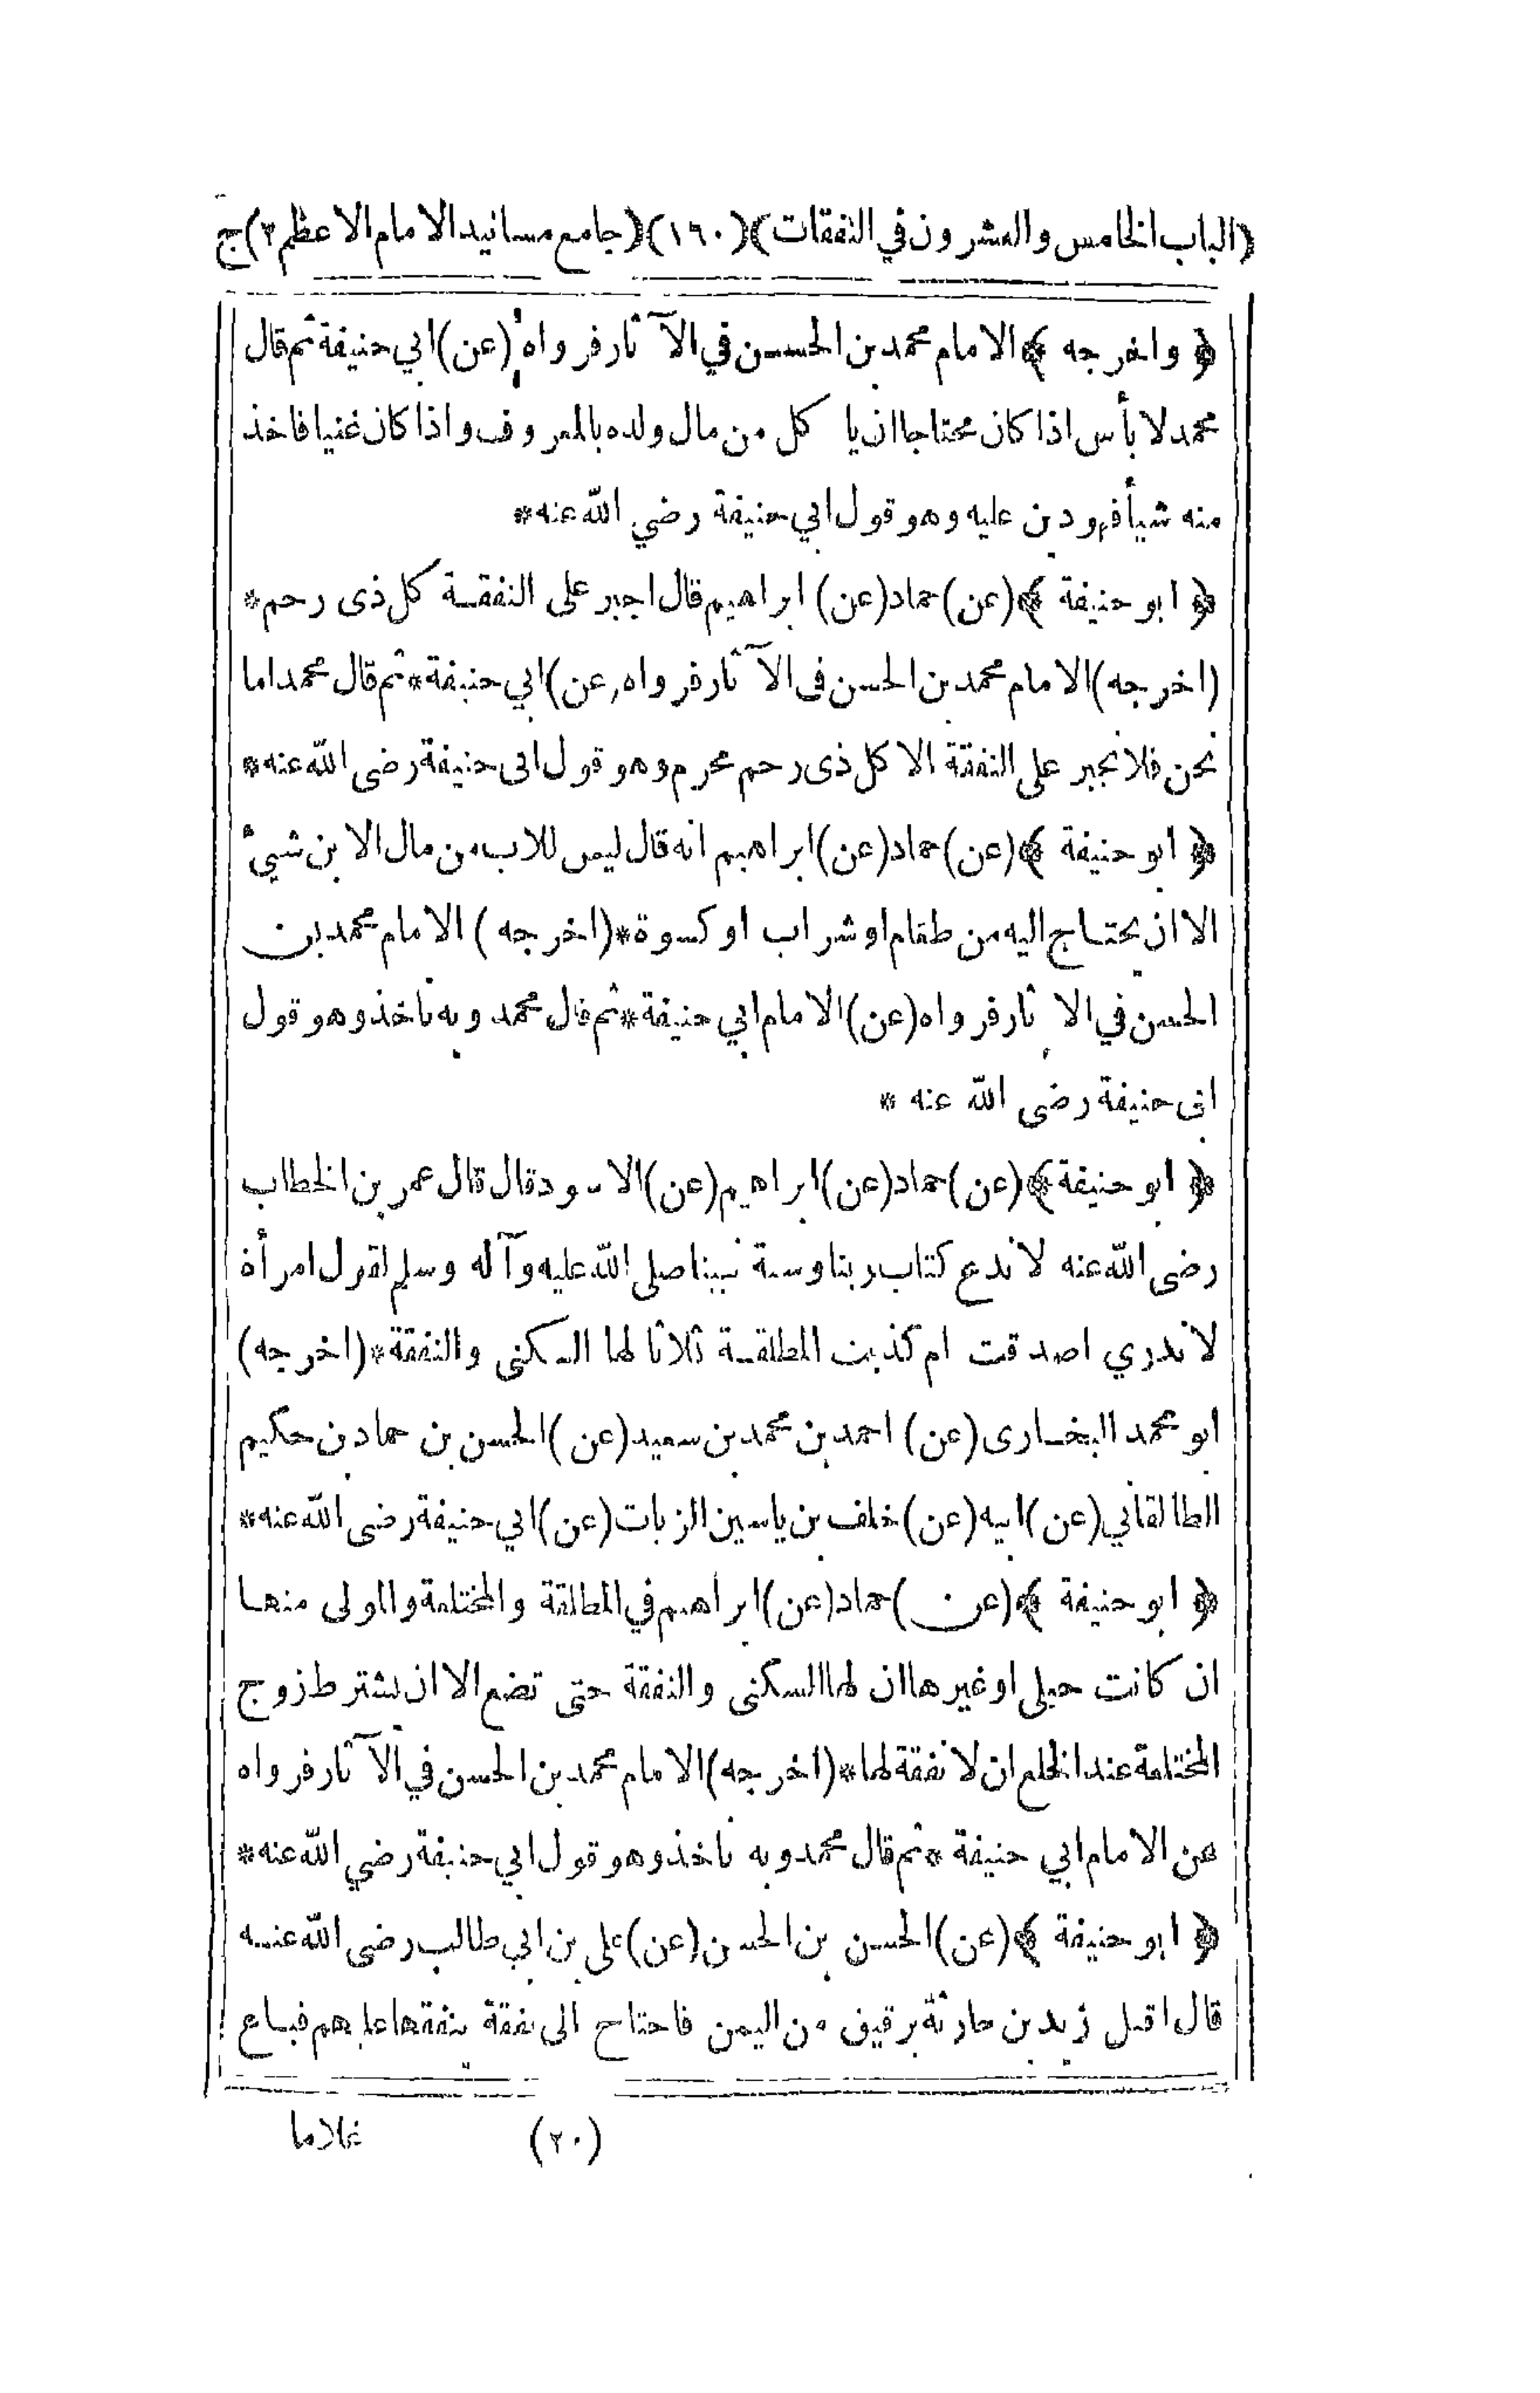 (الباب الخامس والعشرون في النفقات) (١٦٠) (جامع مسانيد الامام الاعظم ٢) ج
﴿ واخرجه ﴾ الامام محمد بن الحسن في الآثار فرواه (عن) ابي حنيفة ثم قال
محمد لا بأس اذا كان محتاجا ان يا كل من مال ولده بالمعروف واذا كان غنيا فاخذ
منه شيأ فهو دين عليه وهو قول ابي حنيفة رضي الله عنه*
﴿ ابو حنيفة ﴾ (عن) حماد (عن) ابراهيم قال اجبر على النفقة كل ذى رحم*
(اخرجه) الامام محمد بن الحسن فى الآثار فرواه (عن) ابي حنيفة* ثم قال محمد اما
نحن فلا نجبر على النفقة الا كل ذى رحم محرم وهو قول ابى حنيفة رضى الله عنه*
﴿ ابو حنيفة ﴾ (عن) حماد (عن) ابراهيم انه قال ليس للاب من مال الابن شيئ
الا ان يحتاج اليه من طعام او شراب او كسوة* (اخرجه) الامام محمد بن
الحسن في الاثار فرواه (عن) الامام ابي حنيفة* ثم قال محمد وبه ناخذ وهو قول
ابى حنيفة رضى الله عنه *
﴿ ابو حنيفة ﴾ (عن) حماد (عن) ابراهيم (عن) الاسود قال قال عمر بن الخطاب
رضى الله عنه لا ندع كتاب ربنا وسنة نبينا صلى الله عليه وآله وسلم لقول امرأة
لا ندري اصدقت ام كذبت المطلقة ثلاثا لها السكنى والنفقة* (اخرجه)
ابو محمد البخارى (عن) احمد بن محمد بن سعيد (عن) الحسن بن حماد بن حكيم
الطالقاني (عن) ابيه (عن) خلف بن ياسين الزيات (عن) ابي حنيفة رضى الله عنه*
﴿ ابو حنيفة ﴾ (عن) حماد (عن) ابراهيم في المطلقة والمختلعة والمولى منها
ان كانت حبلى او غيرها ان لها السكنى والنفقة حتى تضع الا ان يشترط زوج
المختلعة عند الخلع ان لا نفقة لها* (اخرجه) الامام محمد بن الحسن في الآثار فرواه
عن الامام ابي حنيفة * ثم قال محمد وبه ناخذ وهو قول ابي حنيفة رضي الله عنه*
﴿ ابو حنيفة ﴾ (عن) الحسن بن الحسن (عن) علي بن ابي طالب رضى الله عنه
قال اقبل زيد بن حارثة برقيق من اليمن فاحتاج الى نفقة ينفقها عليهم فباع
(٢٠) غلاما